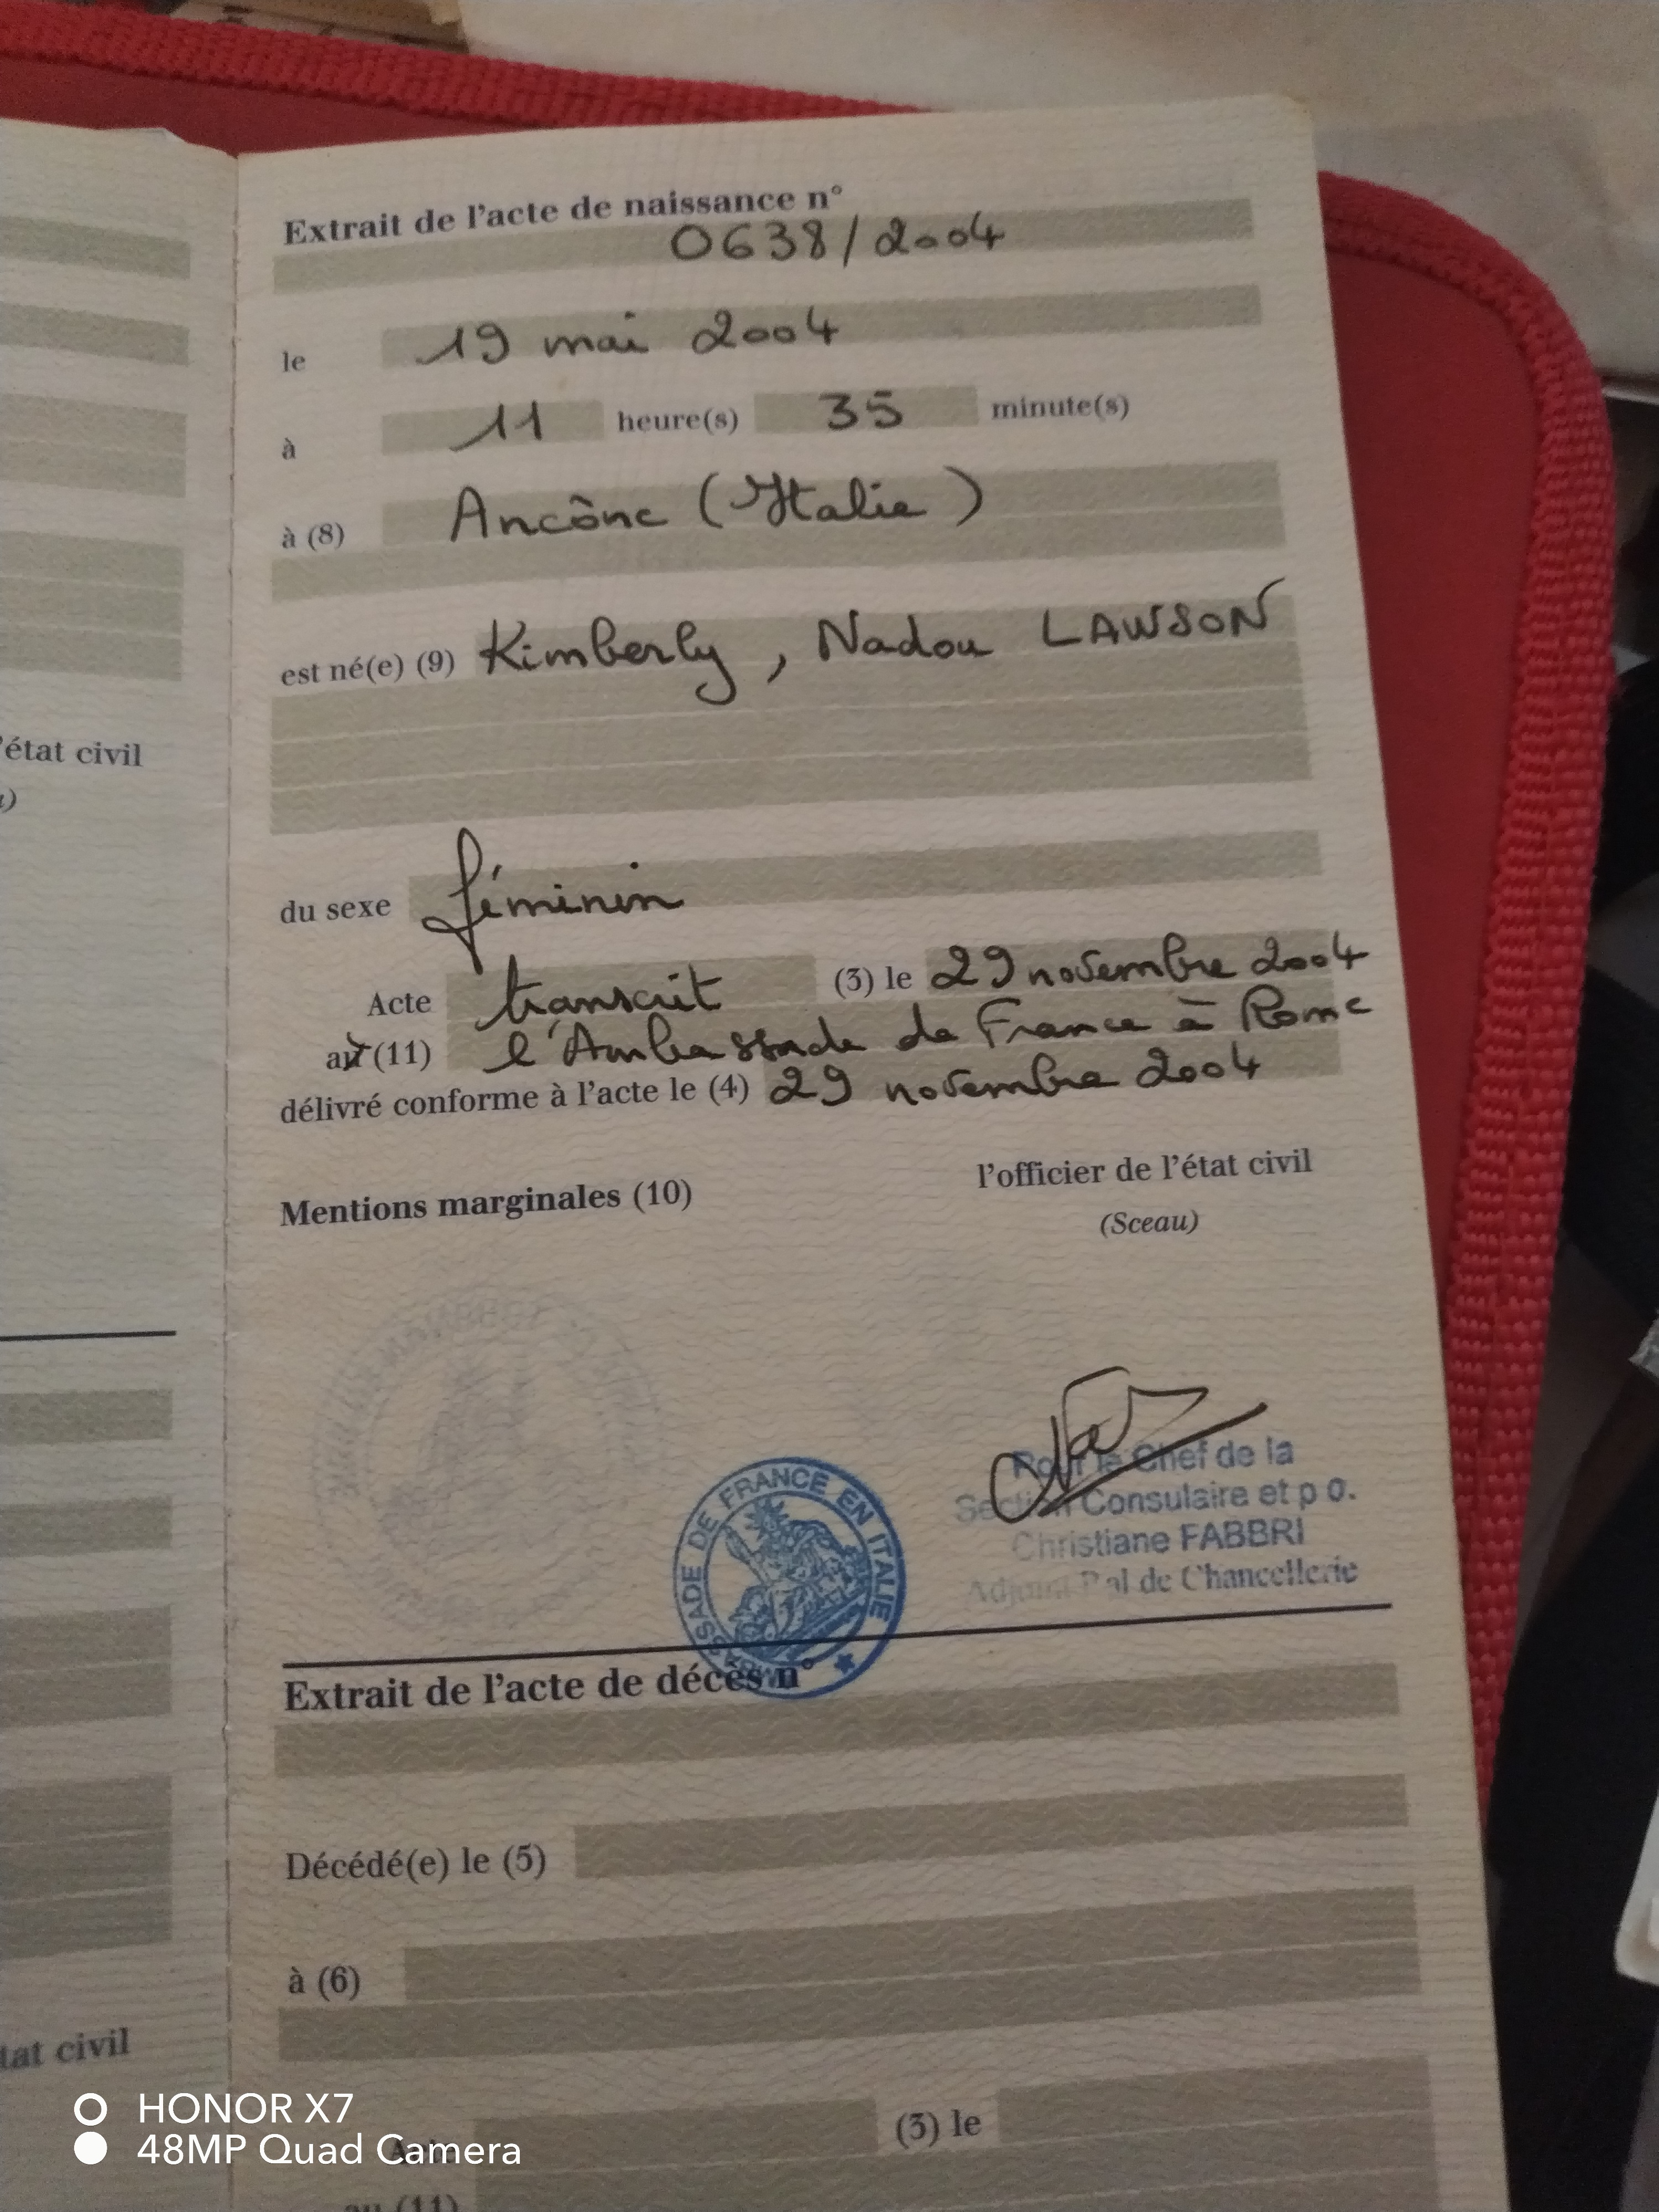 Extrait de l'acte de naissance n°
0638/2004
le 19 mai 2004
à 11 heure(s) 35 minute(s)
à (8) Ancône (Italie)
est né(e) (9) Kimberly, Nadou LAWSON
'état civil
du sexe féminin
Acte transcrit (3) le 29 novembre 2004
au (11) l'Ambassade de France à Rome
délivré conforme à l'acte le (4) 29 novembre 2004
Mentions marginales (10)
l'officier de l'état civil
(Sceau)
Pour le Chef de la
Section Consulaire et p o.
Christiane FABBRI
Adjoint Pal de Chancellerie
AMBASSADE DE FRANCE EN ITALIE
Extrait de l'acte de décès n°
Décédé(e) le (5)
à (6)
tat civil
Acte (3) le
au (11)
HONOR X7
48MP Quad Camera